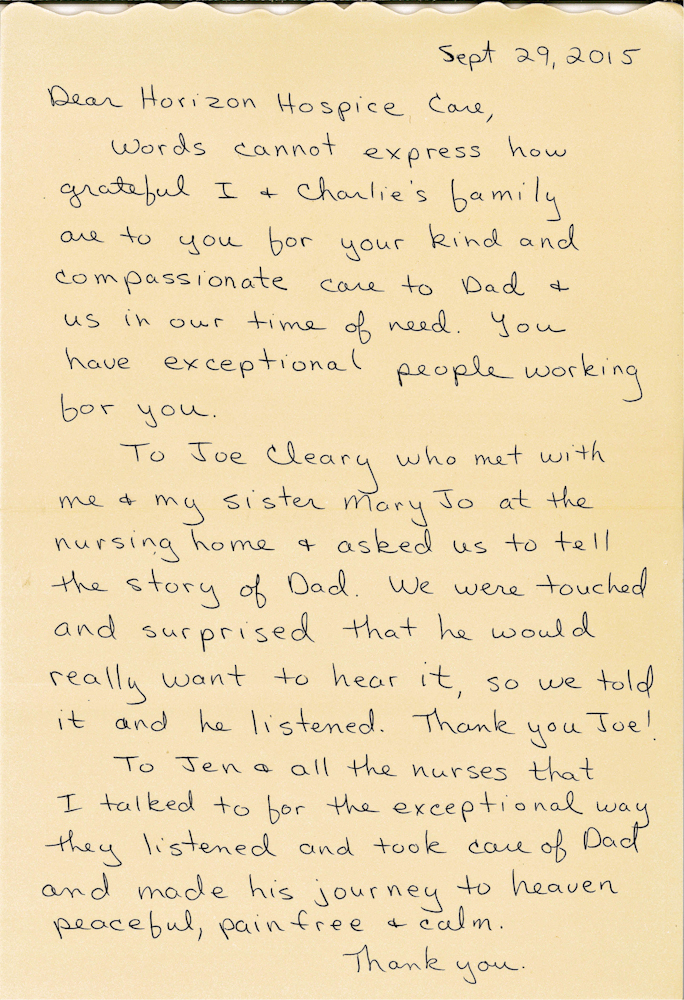 Sept 29, 2015
Dear Horizon Hospice Care,
Words cannot express how
grateful I & Charlie's family
are to you for your kind and
compassionate care to Dad &
us in our time of need. You
have exceptional people working
for you.
To Joe Cleary who met with
me & my sister Mary Jo at the
nursing home & asked us to tell
the story of Dad. We were touched
and surprised that he would
really want to hear it, so we told
it and he listened. Thank you Joe!
To Jen & all the nurses that
I talked to for the exceptional way
they listened and took care of Dad
and made his journey to heaven
peaceful, pain free & calm.
Thank you.